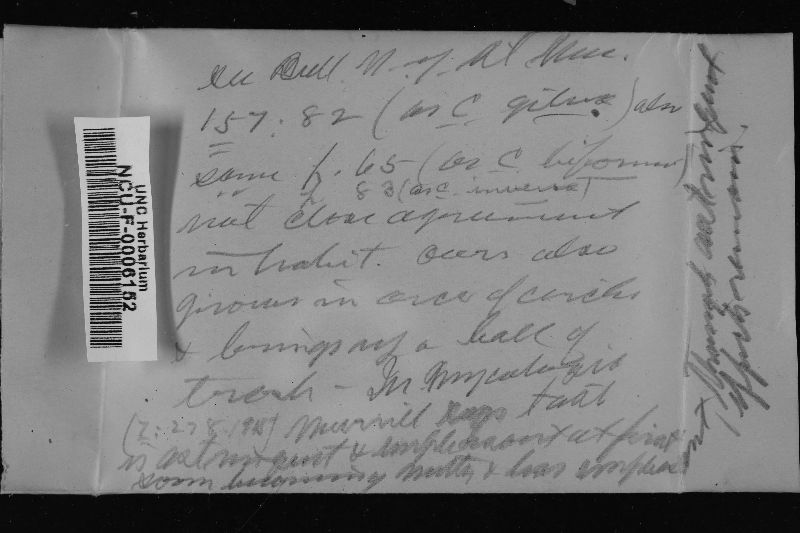 See Bull. N.Y. St. Mus.
157: 82 (as C. gilva) also
same p. 65 (as C. biformis)
p. 83 (as C. inversa)
not close agreement
in habit. Ours also
grows in arcs of circles
& brings up a ball of
trash - In Mycologia
(7: 278. 1915) Murrill says that
is astringent & unpleasant at first
soon becoming nutty, & has unpleasant
Though astringent
effects remain.
UNC Herbarium
NCU-F-0006152